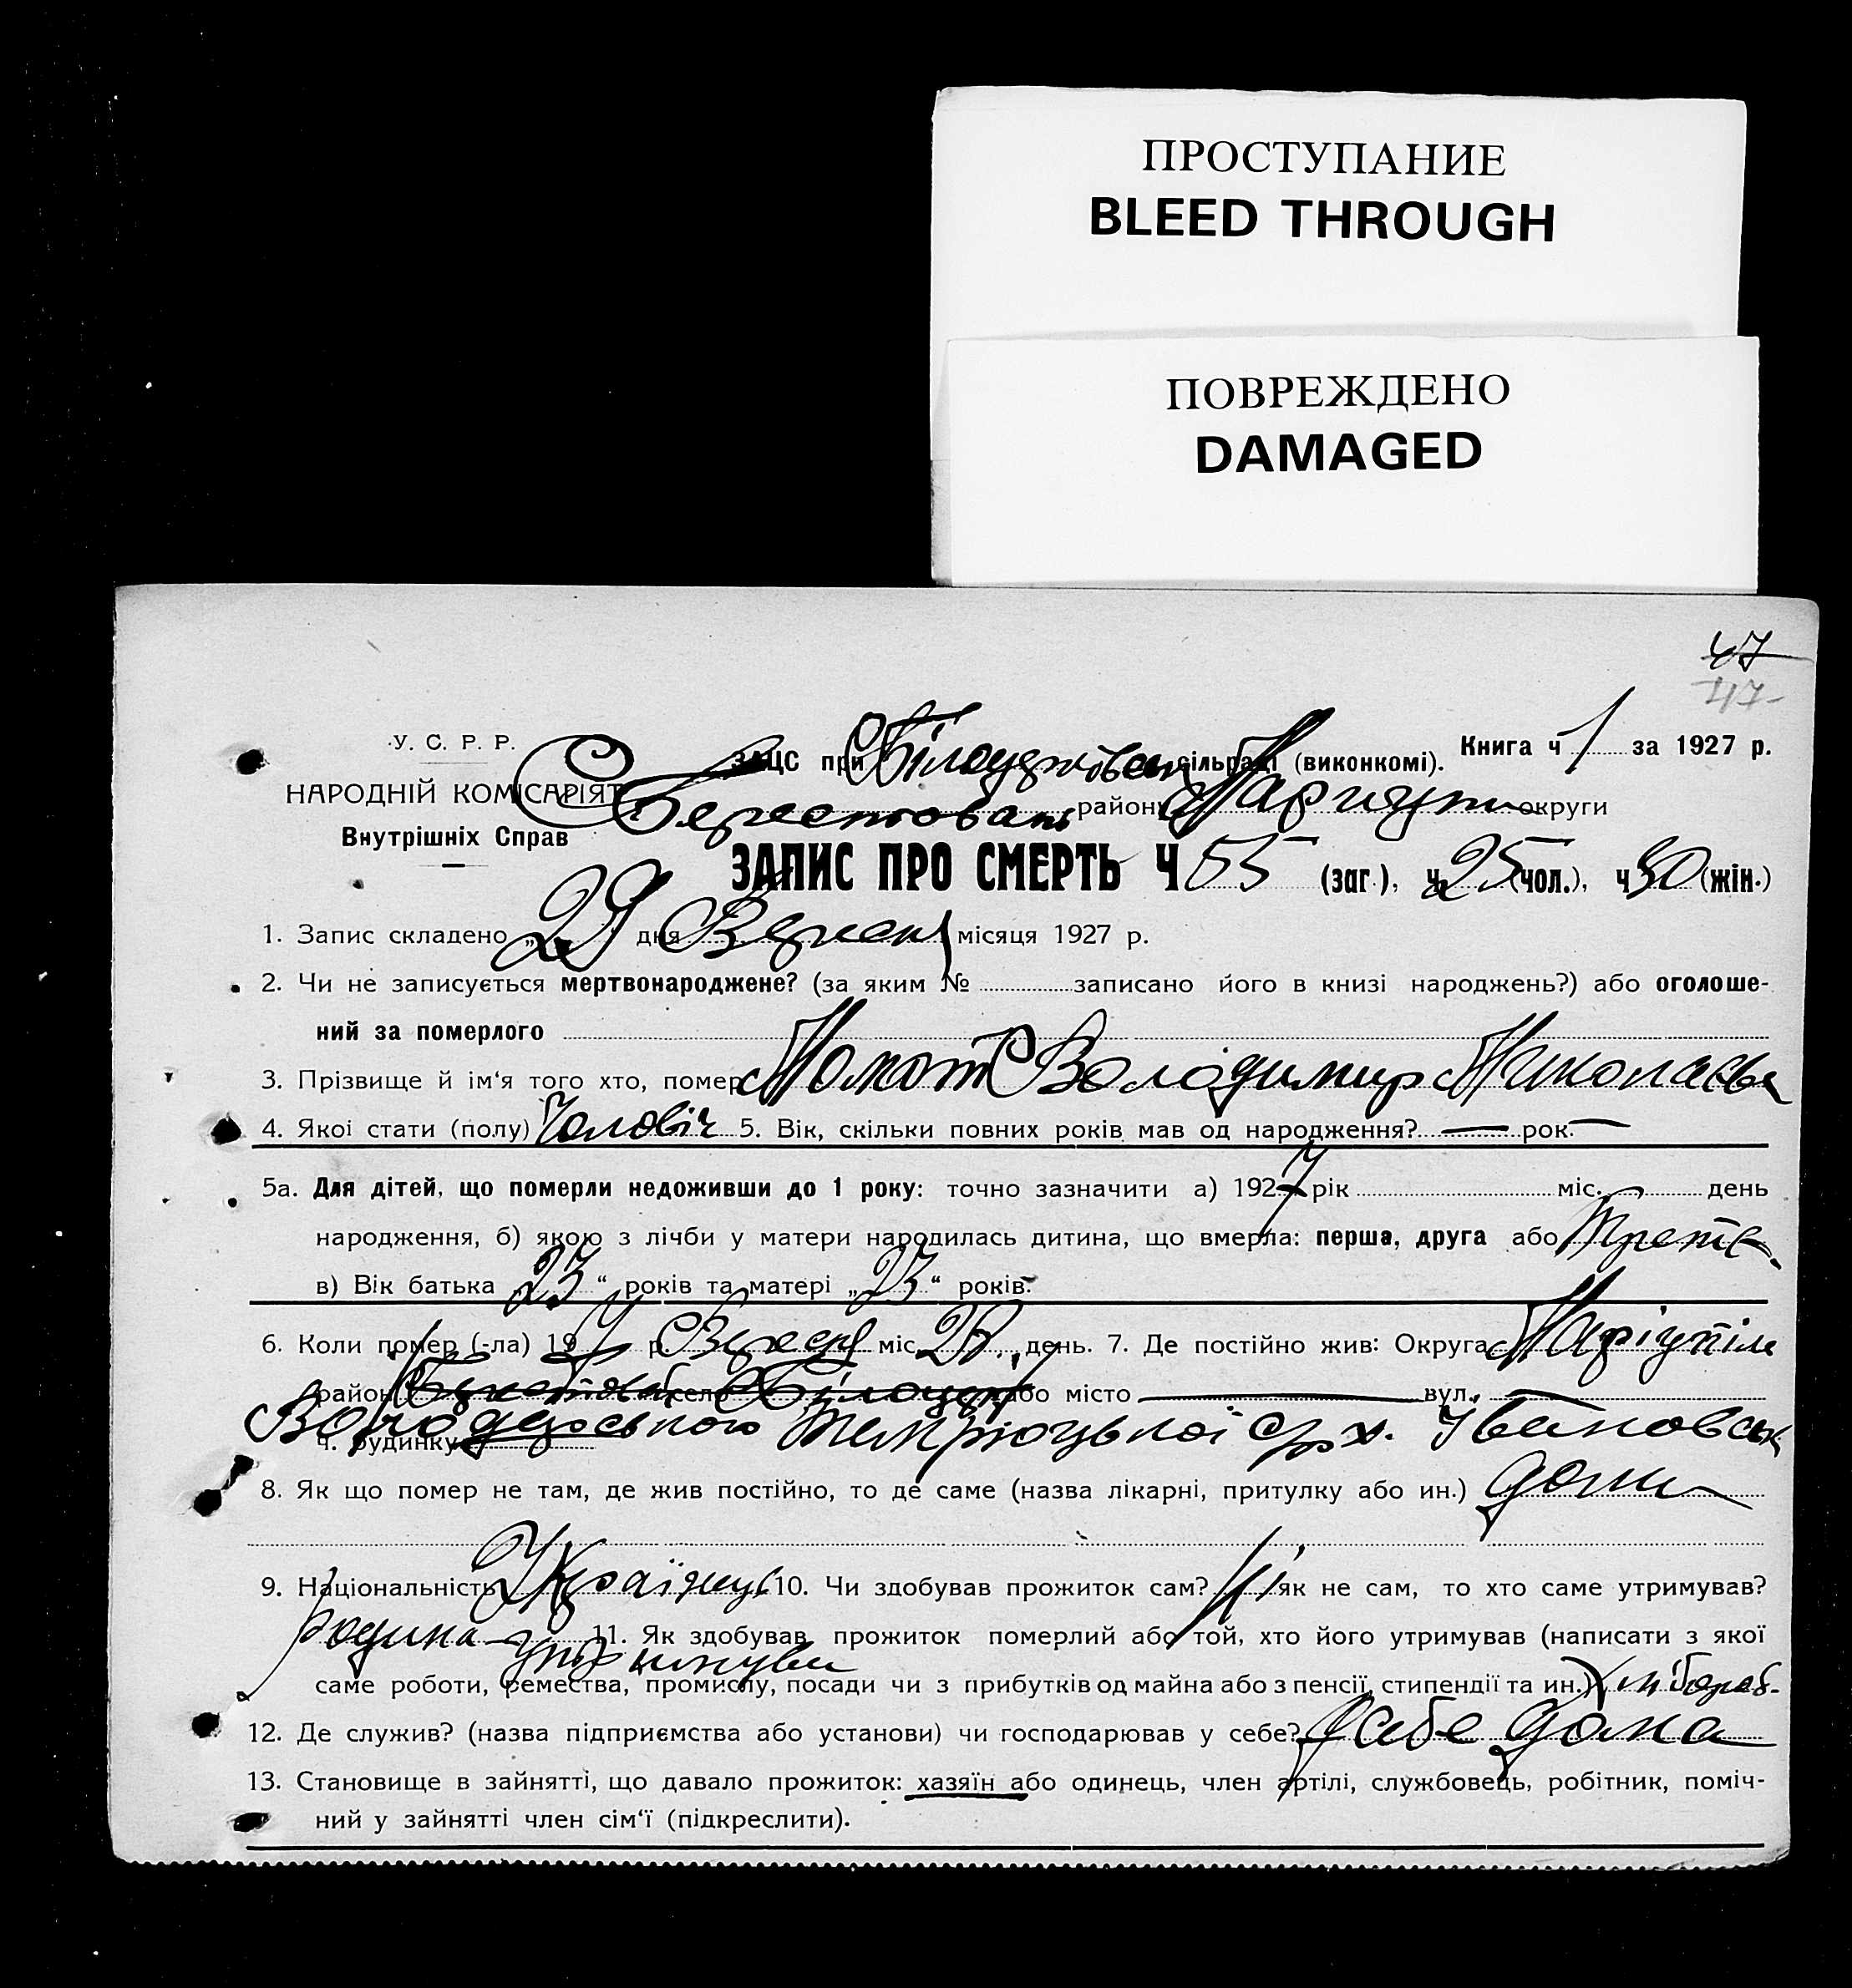 ПРОСТУПАНИЕ
BLEED THROUGH
ПОВРЕЖДЕНО
DAMAGED
47
47
У. С. Р. Р.
НАРОДНІЙ КОМІСАРІЯТ
Внутрішніх Справ
ЗАЦС при сільраді (виконкомі). Книга ч 1 за 1927 р.
району округи
ЗАПИС ПРО СМЕРТЬ Ч 55 (заг.), ч. 25 (чол.), ч 30 (жін.)
1. Запис складено „29“ дня місяця 1927 р.
2. Чи не записується мертвонароджене? (за яким № записано його в книзі народжень?) або оголоше-
ний за померлого
3. Прізвище й ім‘я того хто, помер Момот Володимир Николаєв
4. Якої стати (полу) Чоловіч 5. Вік, скільки повних років мав од народження? — рок. —
5а. Для дітей, що померли недоживши до 1 року: точно зазначити а) 1927 рік міс. день
народження, б) якою з лічби у матери народилась дитина, що вмерла: перша, друга або
в) Вік батька „23“ років та матері „23“ років.
6. Коли помер (-ла) 1927 р. міс. день. 7. Де постійно жив: Округа Маріупіль
район село або місто — вул. —
ч. будинку Темрюцької с/р х. Івановськ
8. Як що помер не там, де жив постійно, то де саме (назва лікарні, притулку або ин.) дома
9. Національність Українец 10. Чи здобував прожиток сам? Ні як не сам, то хто саме утримував?
родина 11. Як здобував прожиток померлий або той, хто його утримував (написати з якої
саме роботи, ремества, промислу, посади чи з прибутків од майна або з пенсії, стипендії та ин.) хлібороб.
12. Де служив? (назва підприємства або установи) чи господарював у себе? у себе дома
13. Становище в зайнятті, що давало прожиток: хазяїн або одинець, член артілі, службовець, робітник, поміч-
ний у зайнятті член сім‘ї (підкреслити).